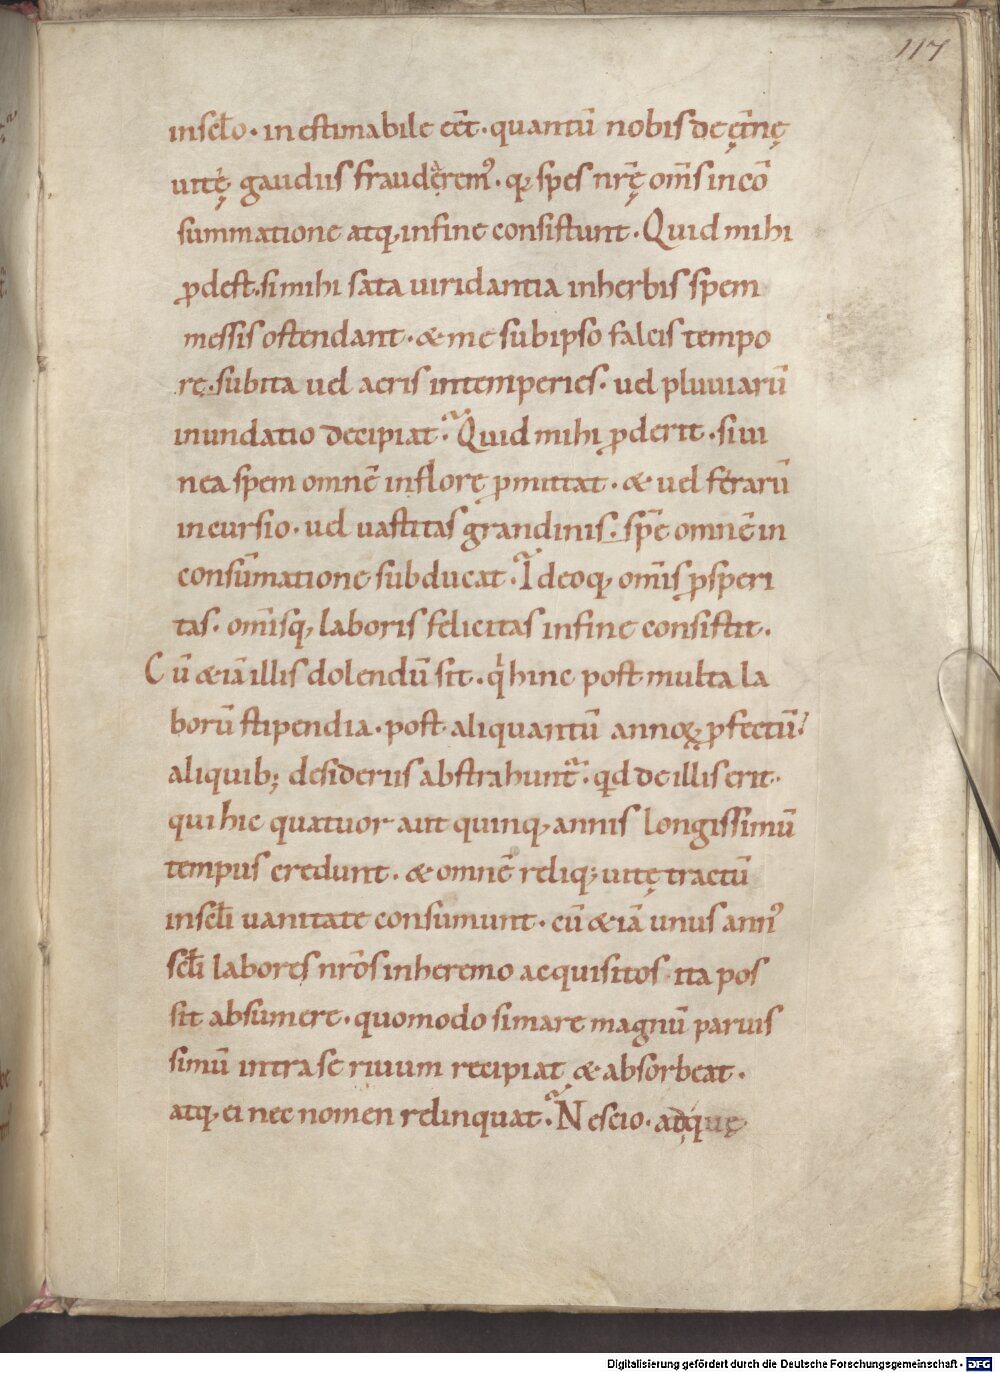 117
in scło · inestimabile eēt · quantū nobis de ęt̄nę
uitę gaudiis fraudęremꝰ · qꝛ spes nr̄ę om̄s in cō
summatione atq; in fine consistunt · Quid mihi
ꝓdest · si mihi sata uiridantia in herbis spem
messis ostendant · & me sub ipso falcis tempo
rę · subita uel aeris intemperies · uel pluuiarū
inundatio decipiat · Quid mihi ꝓderit · si ui
nea spem omnē in florę ꝓmittat · & uel ferarū
incursio · uel uastitas grandinis · spē omnē in
consūmatione subducat · Ideoq; om̄is ꝓsperi
tas · om̄isq; laboris felicitas in fine consistit ·
Cū & iā illis dolendū sit · qͥ hinc post multa la
borū stipendia · post aliquantū annoꝝ ꝓfectū ·
aliquib; desideriis abstrahunt̄ · qd de illis erit ·
qui hic quatuor aut quinq; annis longissimū
tempus credunt · & omnē reliq; uitę tractū
in scłi uanitate consumunt · cū & iā unus annꝰ
scłi laboręs nr̄os in heremo acquisitos · ita pos
sit absumere · quomodo si mare magnū paruis
simū intra se riuum recipiat & absorbeat ·
atq; ei nec nomen relinquat · Nescio · adquę
Digitalisierung gefördert durch die Deutsche Forschungsgemeinschaft - DFG